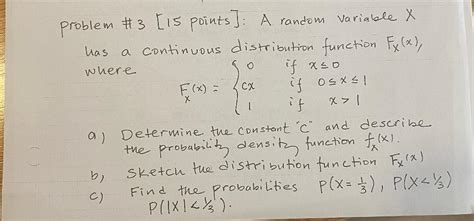 Problem #3 [15 points]: A random variable X
has a continuous distribution function Fx(x),
where
Fx(x) = { 0 if x≤0
cx if 0≤x≤1
1 if x>1
a) Determine the constant "c" and describe
the probability density function fx(x).
b) Sketch the distribution function Fx(x)
c) Find the probabilities P(X=1/3), P(X<1/3)
P(|X|<1/3).